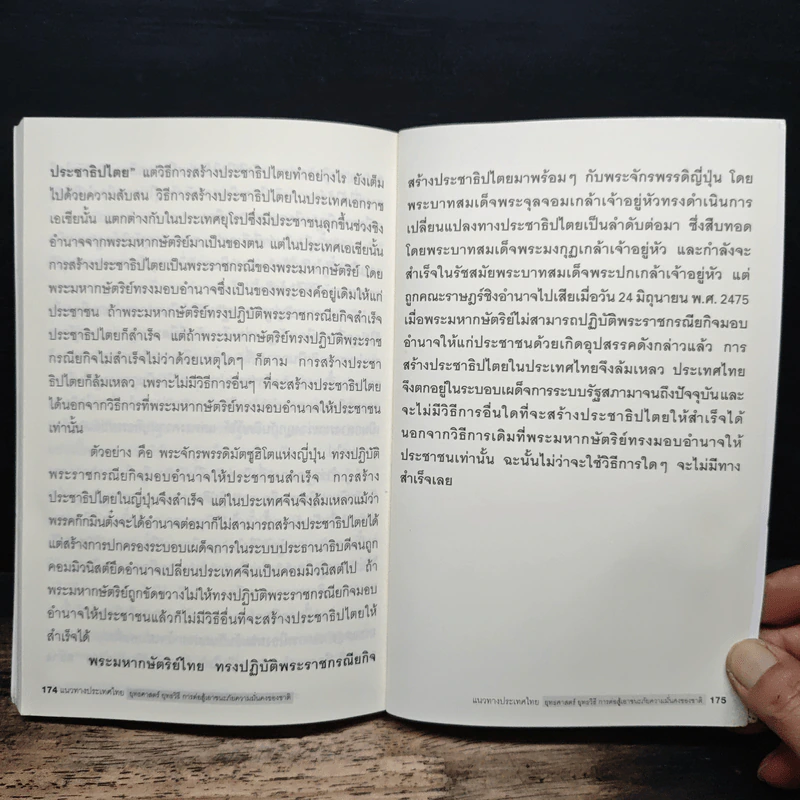 ประชาธิปไตย" แต่วิธีการสร้างประชาธิปไตยทำอย่างไร ยังเต็ม
ไปด้วยความสับสน วิธีการสร้างประชาธิปไตยในประเทศเอกราช
เอเชียนั้น แตกต่างกับในประเทศยุโรปซึ่งมีประชาชนลุกขึ้นช่วงชิง
อำนาจจากพระมหากษัตริย์มาเป็นของตน แต่ในประเทศเอเชียนั้น
การสร้างประชาธิปไตยเป็นพระราชกรณีของพระมหากษัตริย์ โดย
พระมหากษัตริย์ทรงมอบอำนาจซึ่งเป็นของพระองค์อยู่เดิมให้แก่
ประชาชน ถ้าพระมหากษัตริย์ทรงปฏิบัติพระราชกรณียกิจสำเร็จ
ประชาธิปไตยก็สำเร็จ แต่ถ้าพระมหากษัตริย์ทรงปฏิบัติพระราช
กรณียกิจไม่สำเร็จไม่ว่าด้วยเหตุใดๆ ก็ตาม การสร้างประชา
ธิปไตยก็ล้มเหลว เพราะไม่มีวิธีการอื่นๆ ที่จะสร้างประชาธิปไตย
ได้นอกจากวิธีการที่พระมหากษัตริย์ทรงมอบอำนาจให้ประชาชน
เท่านั้น
ตัวอย่าง คือ พระจักรพรรดิมัตซูฮิโตแห่งญี่ปุ่น ทรงปฏิบัติ
พระราชกรณียกิจมอบอำนาจให้ประชาชนสำเร็จ การสร้าง
ประชาธิปไตยในญี่ปุ่นจึงสำเร็จ แต่ในประเทศจีนจึงล้มเหลวแม้ว่า
พรรคก๊กมินตั๋งจะได้อำนาจต่อมาก็ไม่สามารถสร้างประชาธิปไตยได้
แต่สร้างการปกครองระบอบเผด็จการในระบบประธานาธิบดีจนถูก
คอมมิวนิสต์ยึดอำนาจเปลี่ยนประเทศจีนเป็นคอมมิวนิสต์ไป ถ้า
พระมหากษัตริย์ถูกขัดขวางไม่ให้ทรงปฏิบัติพระราชกรณียกิจมอบ
อำนาจให้ประชาชนแล้วก็ไม่มีวิธีอื่นที่จะสร้างประชาธิปไตยให้
สำเร็จได้
พระมหากษัตริย์ไทย ทรงปฏิบัติพระราชกรณียกิจ
174 แนวทางประเทศไทย ยุทธศาสตร์ ยุทธวิธี การต่อสู้เอาชนะภัยความมั่นคงของชาติ
สร้างประชาธิปไตยมาพร้อมๆ กับพระจักรพรรดิญี่ปุ่น โดย
พระบาทสมเด็จพระจุลจอมเกล้าเจ้าอยู่หัวทรงดำเนินการ
เปลี่ยนแปลงทางประชาธิปไตยเป็นลำดับต่อมา ซึ่งสืบทอด
โดยพระบาทสมเด็จพระมงกุฎเกล้าเจ้าอยู่หัว และกำลังจะ
สำเร็จในรัชสมัยพระบาทสมเด็จพระปกเกล้าเจ้าอยู่หัว แต่
ถูกคณะราษฎร์ชิงอำนาจไปเสียเมื่อวัน 24 มิถุนายน พ.ศ. 2475
เมื่อพระมหากษัตริย์ไม่สามารถปฏิบัติพระราชกรณียกิจมอบ
อำนาจให้แก่ประชาชนด้วยเกิดอุปสรรคดังกล่าวแล้ว การ
สร้างประชาธิปไตยในประเทศไทยจึงล้มเหลว ประเทศไทย
จึงตกอยู่ในระบอบเผด็จการระบบรัฐสภามาจนถึงปัจจุบันและ
จะไม่มีวิธีการอื่นใดที่จะสร้างประชาธิปไตยให้สำเร็จได้
นอกจากวิธีการเดิมที่พระมหากษัตริย์ทรงมอบอำนาจให้
ประชาชนเท่านั้น ฉะนั้นไม่ว่าจะใช้วิธีการใดๆ จะไม่มีทาง
สำเร็จเลย
แนวทางประเทศไทย ยุทธศาสตร์ ยุทธวิธี การต่อสู้เอาชนะภัยความมั่นคงของชาติ 175